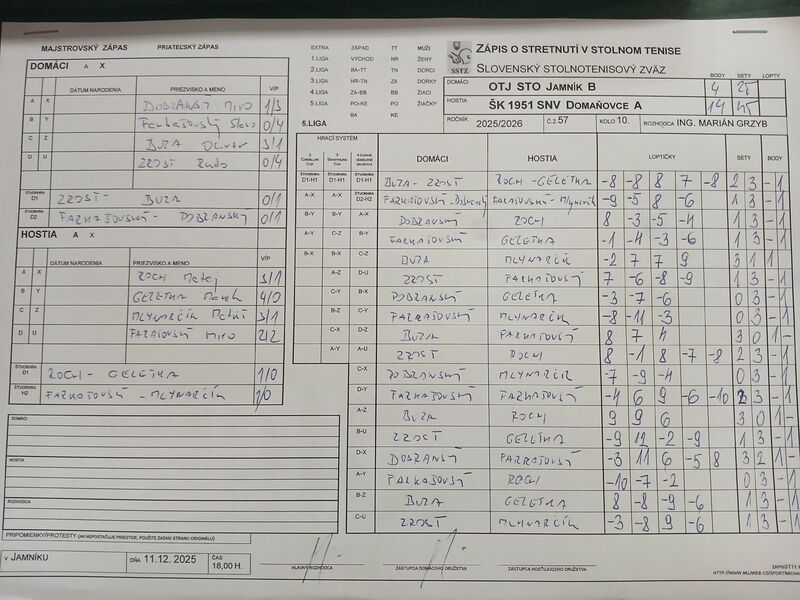 MAJSTROVSKÝ ZÁPAS PRIATEĽSKÝ ZÁPAS
DOMÁCI A X
DÁTUM NARODENIA PRIEZVISKO A MENO V/P
A X DOBRANSKÝ MIRO 1/3
B Y FARKAŠOVSKÝ 0/4
C Z BUZA OLIVER 3/1
D U ZROSŤ RUDO 0/4
ŠTVORHRA D1 ZROSŤ - BUZA 0/1
ŠTVORHRA D2 FARKAŠOVSKÝ - DOBRANSKÝ 0/1
HOSTIA A X
DÁTUM NARODENIA PRIEZVISKO A MENO V/P
A X ROCH MATEJ 3/1
B Y GELETKA MAREK 4/0
C Z MLYNARČÍK MATÚŠ 3/1
D U FARKAŠOVSKÝ MIRO 2/2
ŠTVORHRA D1 ROCH - GELETKA 1/0
ŠTVORHRA H2 FARKAŠOVSKÝ - MLYNARČÍK 1/0
DOMÁCI
HOSTIA
ROZHODCA
PRIPOMIENKY/PROTESTY (AK NEPOSTAČUJE PRIESTOR, POUŽITE ZADNÚ STRANU ORIGINÁLU)
V JAMNÍKU DŇA 11.12. 2025 ČAS 18,00 H.
EXTRA ZÁPAD TT MUŽI
1.LIGA VÝCHOD NR ŽENY
2.LIGA BA-TT TN DORCI
3.LIGA NR-TN ZA DORKY
4.LIGA ZA-BB BB ŽIACI
5.LIGA PO-KE PO ŽIAČKY
BA KE
5.LIGA
SSTZ
ZÁPIS O STRETNUTÍ V STOLNOM TENISE
SLOVENSKÝ STOLNOTENISOVÝ ZVÄZ
BODY SETY LOPTY
DOMÁCI OTJ STO JAMNÍK B 4 25
HOSTIA ŠK 1951 SNV DOMAŇOVCE A 14 45
ROČNÍK 2025/2026 Č.Z. 57 KOLO 10. ROZHODCA ING. MARIÁN GRZYB
HRACÍ SYSTÉM DOMÁCI HOSTIA LOPTIČKY SETY BODY
ŠTVORHRA D1-H1 ŠTVORHRA D1-H1 ŠTVORHRA D1-H1 BUZA - ZROSŤ ROCH - GELETKA -8 -8 8 7 -8 2 3 - 1
A-X A-X ŠTVORHRA D2-H2 FARKAŠOVSKÝ - DOBRANSKÝ FARKAŠOVSKÝ - MLYNARČÍK -9 -5 8 -6 1 3 - 1
B-Y B-Y A-X DOBRANSKÝ ROCH 8 -3 -5 -4 1 3 - 1
A-Y C-Z B-Y FARKAŠOVSKÝ GELETKA -1 -4 -3 -6 1 3 - 1
B-X B-X C-Z BUZA MLYNARČÍK -2 7 7 9 3 1 1
A-Z D-U ZROSŤ FARKAŠOVSKÝ 7 -6 -8 -9 1 3 - 1
C-Y B-X DOBRANSKÝ GELETKA -3 -7 -6 0 3 - 1
B-Z C-Y FARKAŠOVSKÝ MLYNARČÍK -8 -11 -3 0 3 - 1
C-X D-Z BUZA FARKAŠOVSKÝ 8 7 4 3 0 1 -
A-Y A-U ZROSŤ ROCH 8 -1 8 -7 -8 2 3 - 1
C-X DOBRANSKÝ MLYNARČÍK -7 -9 -4 0 3 - 1
D-Y FARKAŠOVSKÝ FARKAŠOVSKÝ -4 6 9 -6 -10 2 3 - 1
A-Z BUZA ROCH 9 9 6 3 0 1 -
B-U ZROSŤ GELETKA -9 12 -2 -9 1 3 - 1
D-X DOBRANSKÝ FARKAŠOVSKÝ -3 11 6 -5 8 3 2 1 -
A-Y FARKAŠOVSKÝ ROCH -10 -7 -2 0 3 - 1
B-Z BUZA GELETKA 8 -8 -9 -6 1 3 - 1
C-U ZROSŤ MLYNARČÍK -3 -8 9 -6 1 3 - 1
HLAVNÝ ROZHODCA ZÁSTUPCA DOMÁCEHO DRUŽSTVA ZÁSTUPCA HOSŤUJÚCEHO DRUŽSTVA